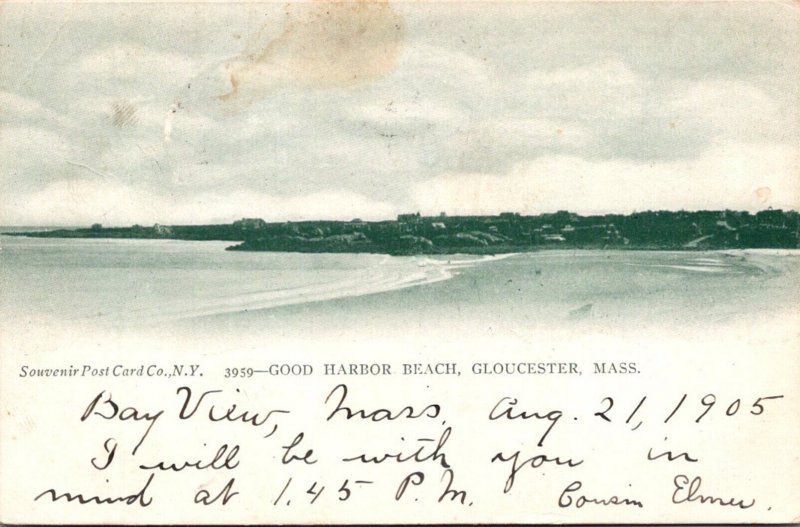 Souvenir Post Card Co., N.Y. 3959—GOOD HARBOR BEACH, GLOUCESTER, MASS.
Bay View, Mass, Aug. 21, 1905
I will be with you in
mind at 1.45 P.M. Cousin Elmer.